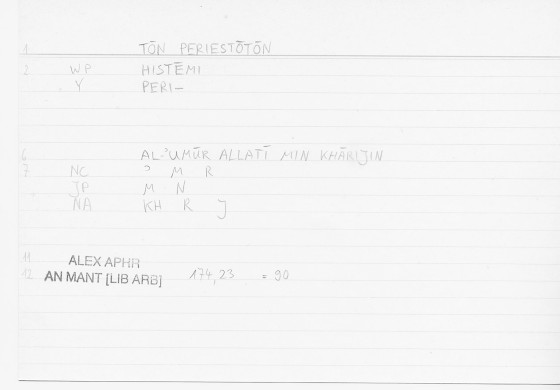 1 TŌN PERIESTŌTŌN
2 WP HISTĒMI
Y PERI-
6 AL-ʾUMŪR ALLATĪ MIN KHĀRIJIN
7 NC ʾ M R
JP M N
NA KH R J
11 ALEX APHR
12 AN MANT [LIB ARB] 174,23 = 90